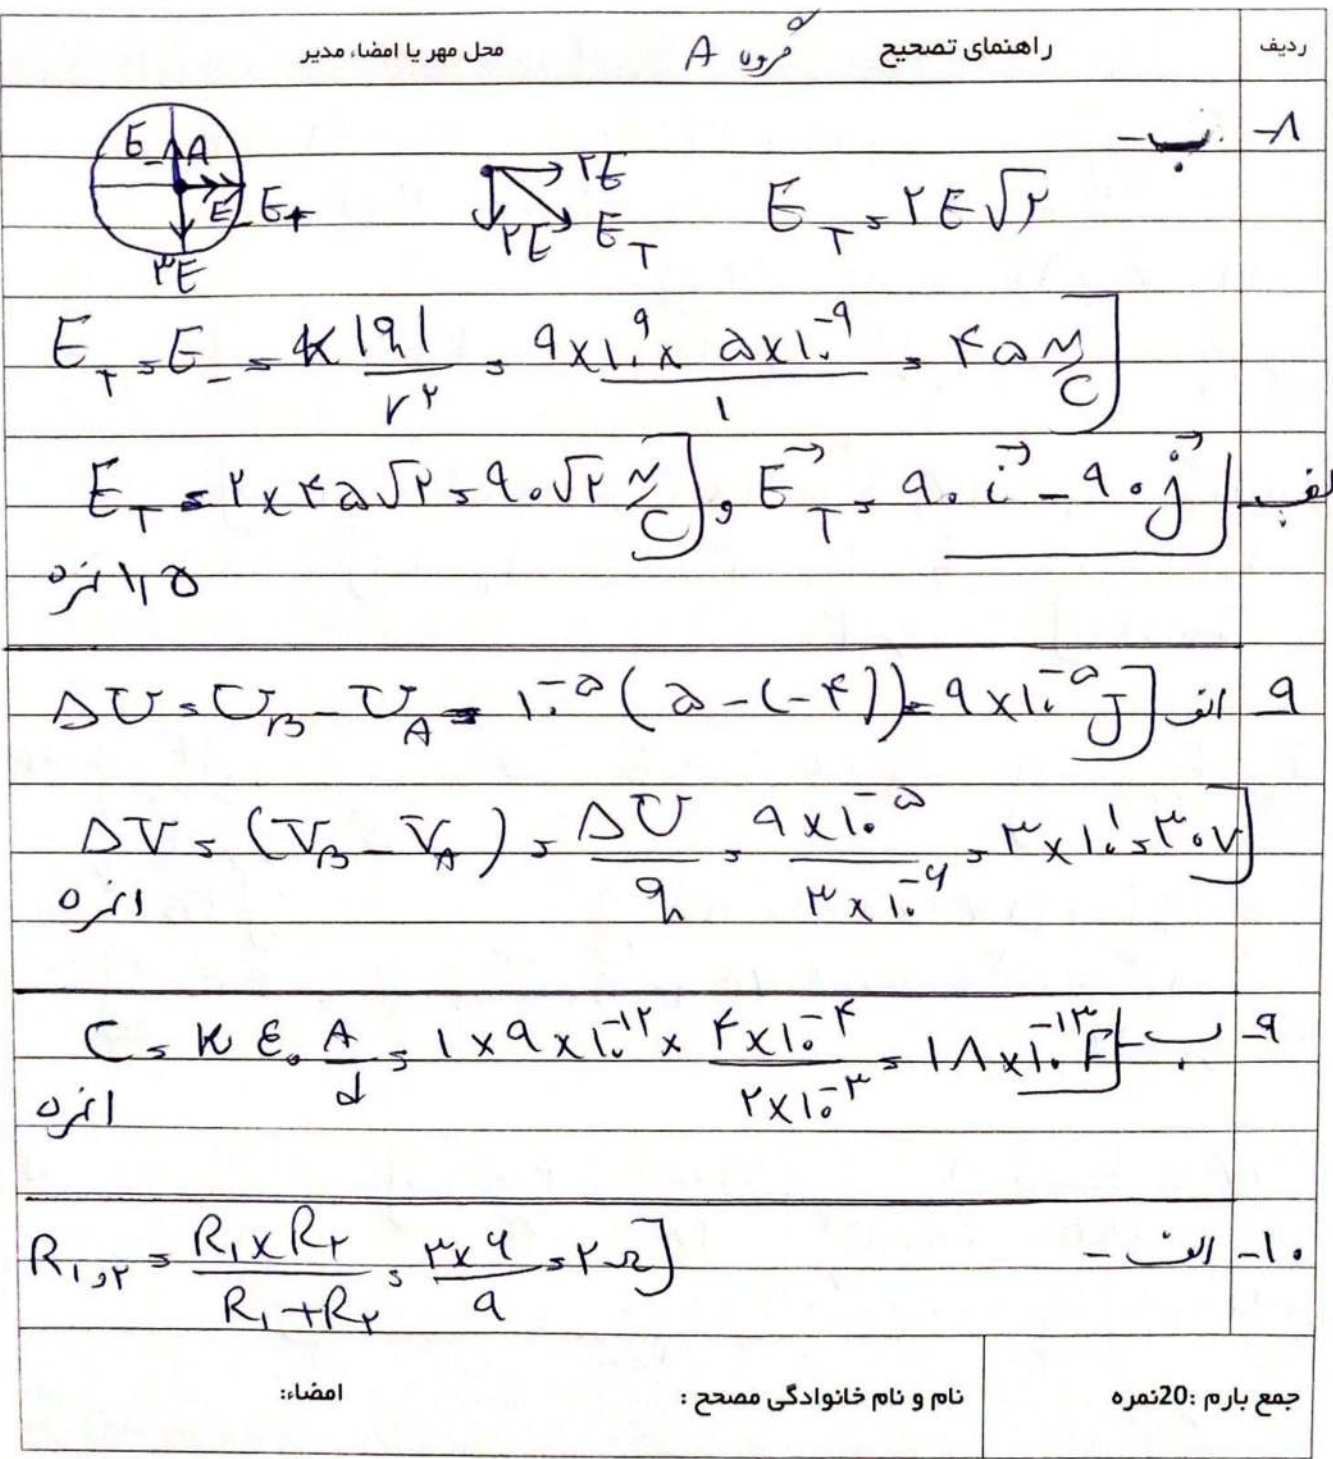 ردیف راهنمای تصحیح گروه A محل مهر یا امضاء مدیر
۸- ب-
E_ A E_ E+ ۳E
۲E ۲E E_T E_T = ۲E√۲
E_+ = E_- = k|q|/r² = ۹×۱۰^۹ × ۵×۱۰^-۹ / ۱ = ۴۵ N/C
E_T = ۲×۴۵√۲ = ۹۰√۲ N/C و E⃗_T = ۹۰ i⃗ - ۹۰ j⃗ الف
۱/۵ نمره
۹ الف ΔU = U_B - U_A = ۱۰^-۵ (۵-(-۴)) = ۹×۱۰^-۵ J
ΔV = (V_B - V_A) = ΔU/q = ۹×۱۰^-۵ / ۳×۱۰^-۶ = ۳×۱۰^۱ = ۳۰V
۱ نمره
۹- ب- C = κ ε₀ A/d = ۱×۹×۱۰^-۱۲ × ۴×۱۰^-۴ / ۲×۱۰^-۳ = ۱۸×۱۰^-۱۳ F
۱ نمره
۱۰- الف - R_۱و۲ = R_۱×R_۲ / R_۱+R_۲ = ۳×۶ / ۹ = ۲Ω
جمع بارم :20نمره نام و نام خانوادگی مصحح : امضاء: